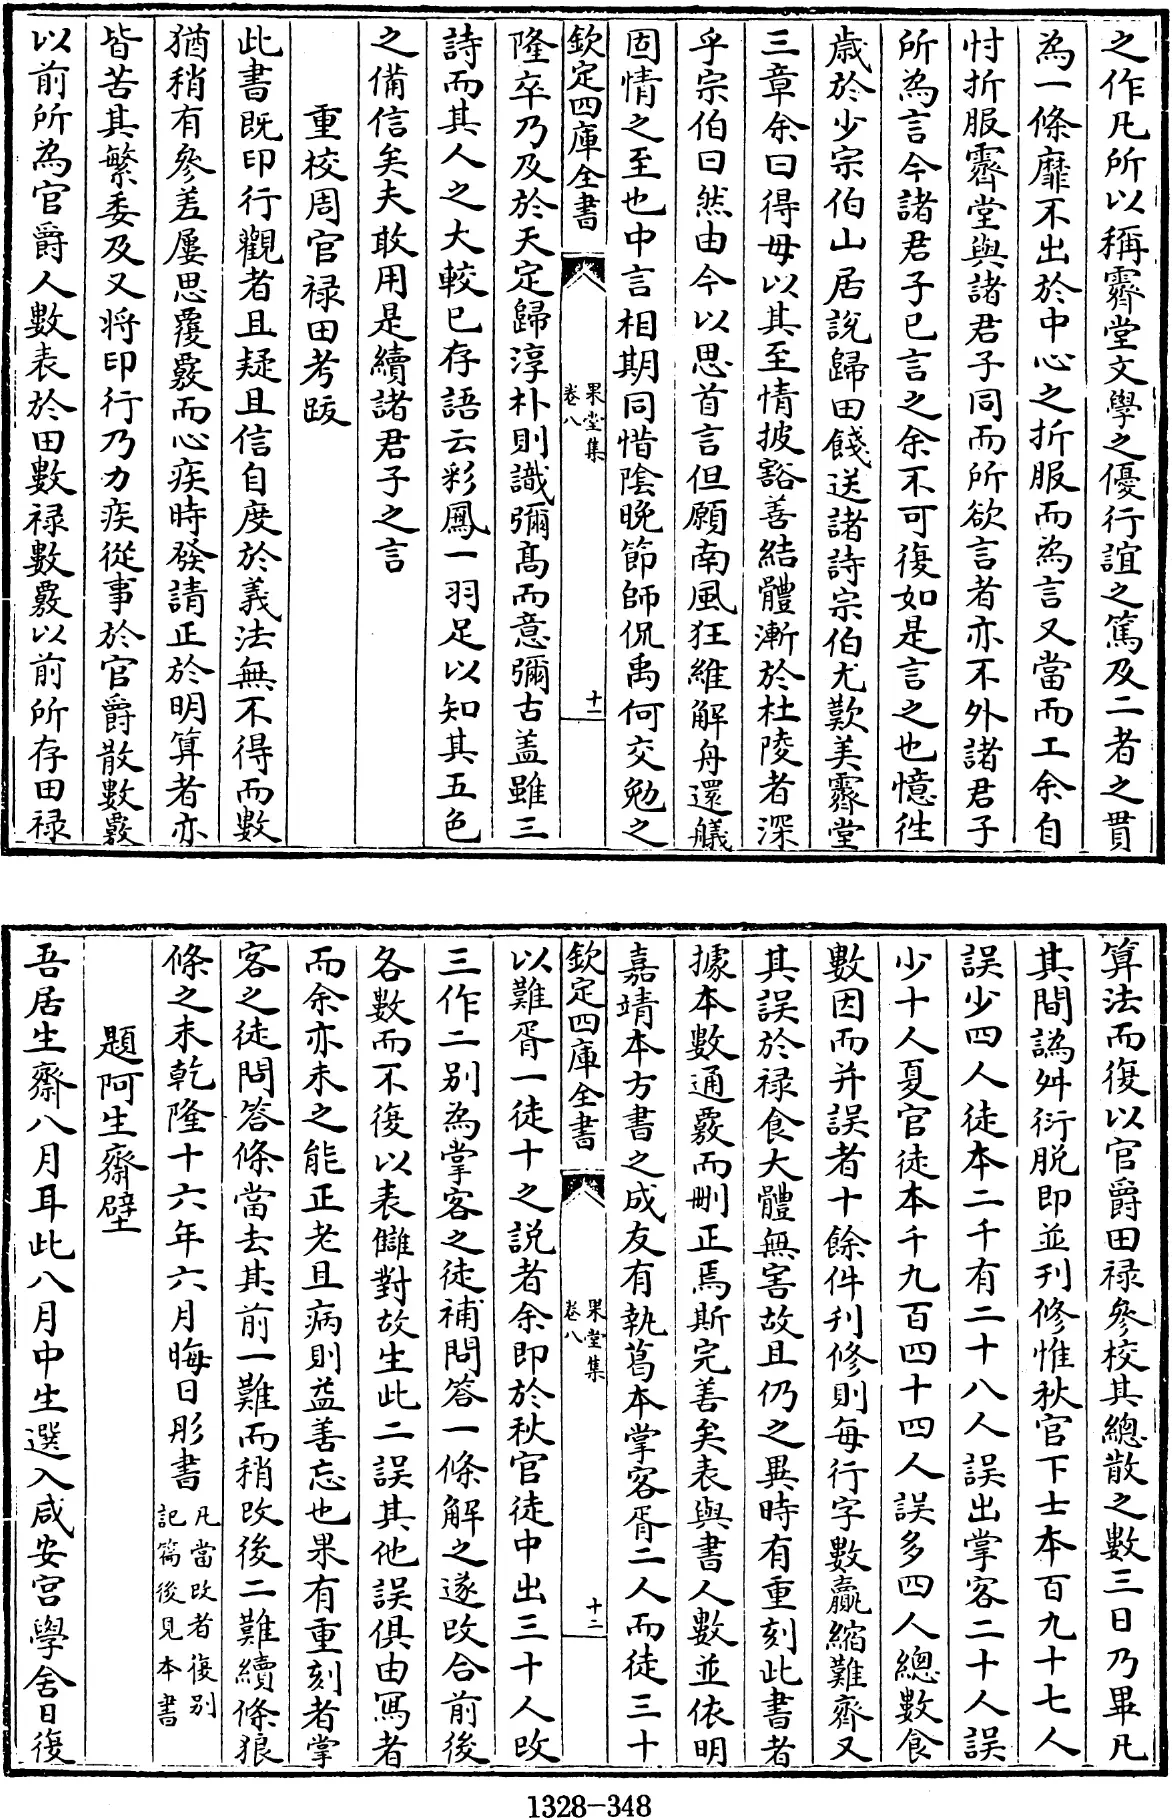 之作凡所以稱霽堂文學之優行誼之篤及二者之貫
為一條靡不出於中心之折服而為言又當而工余自
忖折服霽堂與諸君子同而所欲言者亦不外諸君子
所為言今諸君子已言之余不可復如是言之也憶徃
歲於少宗伯山居說歸田餞送諸詩宗伯尤歎美霽堂
三章余曰得毋以其至情披豁善結體漸於杜陵者深
乎宗伯曰然由今以思首言但願南風狂維解舟還艤
固情之至也中言相期同惜陰晚節師侃禹何交勉之
欽定四庫全書 果堂集 卷八 十一
隆卒乃及於天定歸淳朴則識彌髙而意彌古盖雖三
詩而其人之大較已存語云彩鳳一羽足以知其五色
之備信矣夫敢用是續諸君子之言
重校周官禄田考跋
此書既印行觀者且疑且信自度於義法無不得而數
猶稍有參差屢思覆覈而心疾時發請正於明算者亦
皆苦其繁委及又将印行乃力疾從事於官爵散數覈
以前所為官爵人數表於田數禄數覈以前所存田禄
算法而復以官爵田禄參校其總散之數三日乃畢凡
其間譌舛衍脱即並刋修惟秋官下士本百九十七人
誤少四人徒本二千有二十八人誤出掌客二十人誤
少十人夏官徒本千九百四十四人誤多四人總數食
數因而并誤者十餘件刋修則每行字數贏縮難齊又
其誤於禄食大體無害故且仍之異時有重刻此書者
據本數通覈而刪正焉斯完善矣表與書人數並依明
嘉靖本方書之成友有執葛本掌客胥二人而徒三十
欽定四庫全書 果堂集 卷八 十二
以難胥一徒十之説者余即於秋官徒中出三十人改
三作二别為掌客之徒補問答一條解之遂改合前後
各數而不復以表讎對故生此二誤其他誤俱由寫者
而余亦未之能正老且病則益善忘也果有重刻者掌
客之徒問答條當去其前一難而稍改後二難續條狼
條之末乾隆十六年六月晦日彤書 凡當改者復别記篇後見本書
題阿生齋壁
吾居生齋八月耳此八月中生選入咸安宫學舍日復
1328-348